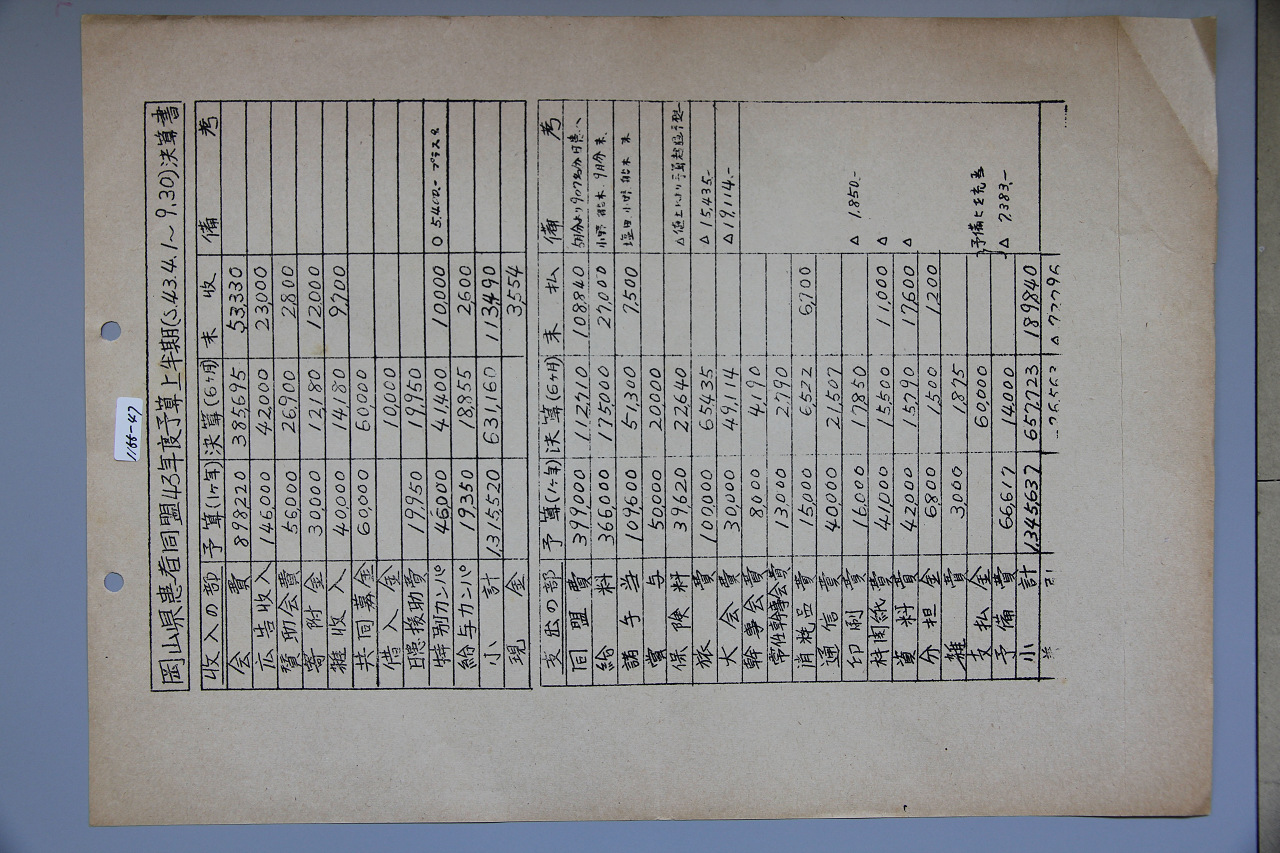 1166-47
岡山県患者同盟43年度予算上半期(S.43.4.1～9.30)決算書
収入の部 予算(1ヶ年) 決算(6ヶ月) 未収 備考
会費 898,220 385,695 53,330
広告収入 146,000 42,000 23,000
賛助会費 56,000 26,900 2,800
寄附金 30,000 12,180 12,000
雑収入 40,000 14,180 9,700
共同募金 60,000 60,000
借入金 10,000
日患援助費 19,950 19,950
特別カンパ 46,000 41,400 10,000 ○ 5,400.- プラス
給与カンパ 19,350 18,855 2,600
小計 1,315,520 631,160 113,490
現金 3,554
支出の部 予算(1ヶ年) 決算(6ヶ月) 未払 備考
同盟費 399,000 112,710 108,840
給料 366,000 175,000 27,000 小野 9月分 未
諸手当 109,600 51,300 7,500 小野 未
賞与 50,000 20,000
保険料 39,620 22,640 △値上により予算超過予想
旅費 100,000 65,435 △ 15,435.-
大会費 30,000 49,114 △ 19,114.-
幹事会費 8,000 4,190
常任幹事会費 13,000 2,790
消耗品費 15,000 6,522 6,700
通信費 40,000 21,507
印刷費 16,000 17,850 △ 1,850.-
新聞紙費 41,000 15,500 11,000 △
資料費 42,000 15,790 17,600 △
分担金 6,800 1,500 1,200
雑費 3,000 1,875
支払金 60,000 予備ヒを充当
予備費 66,617 14,000 △ 7,383.-
小計 1,345,637 657,723 189,840